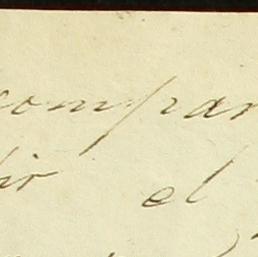 compar
bir el